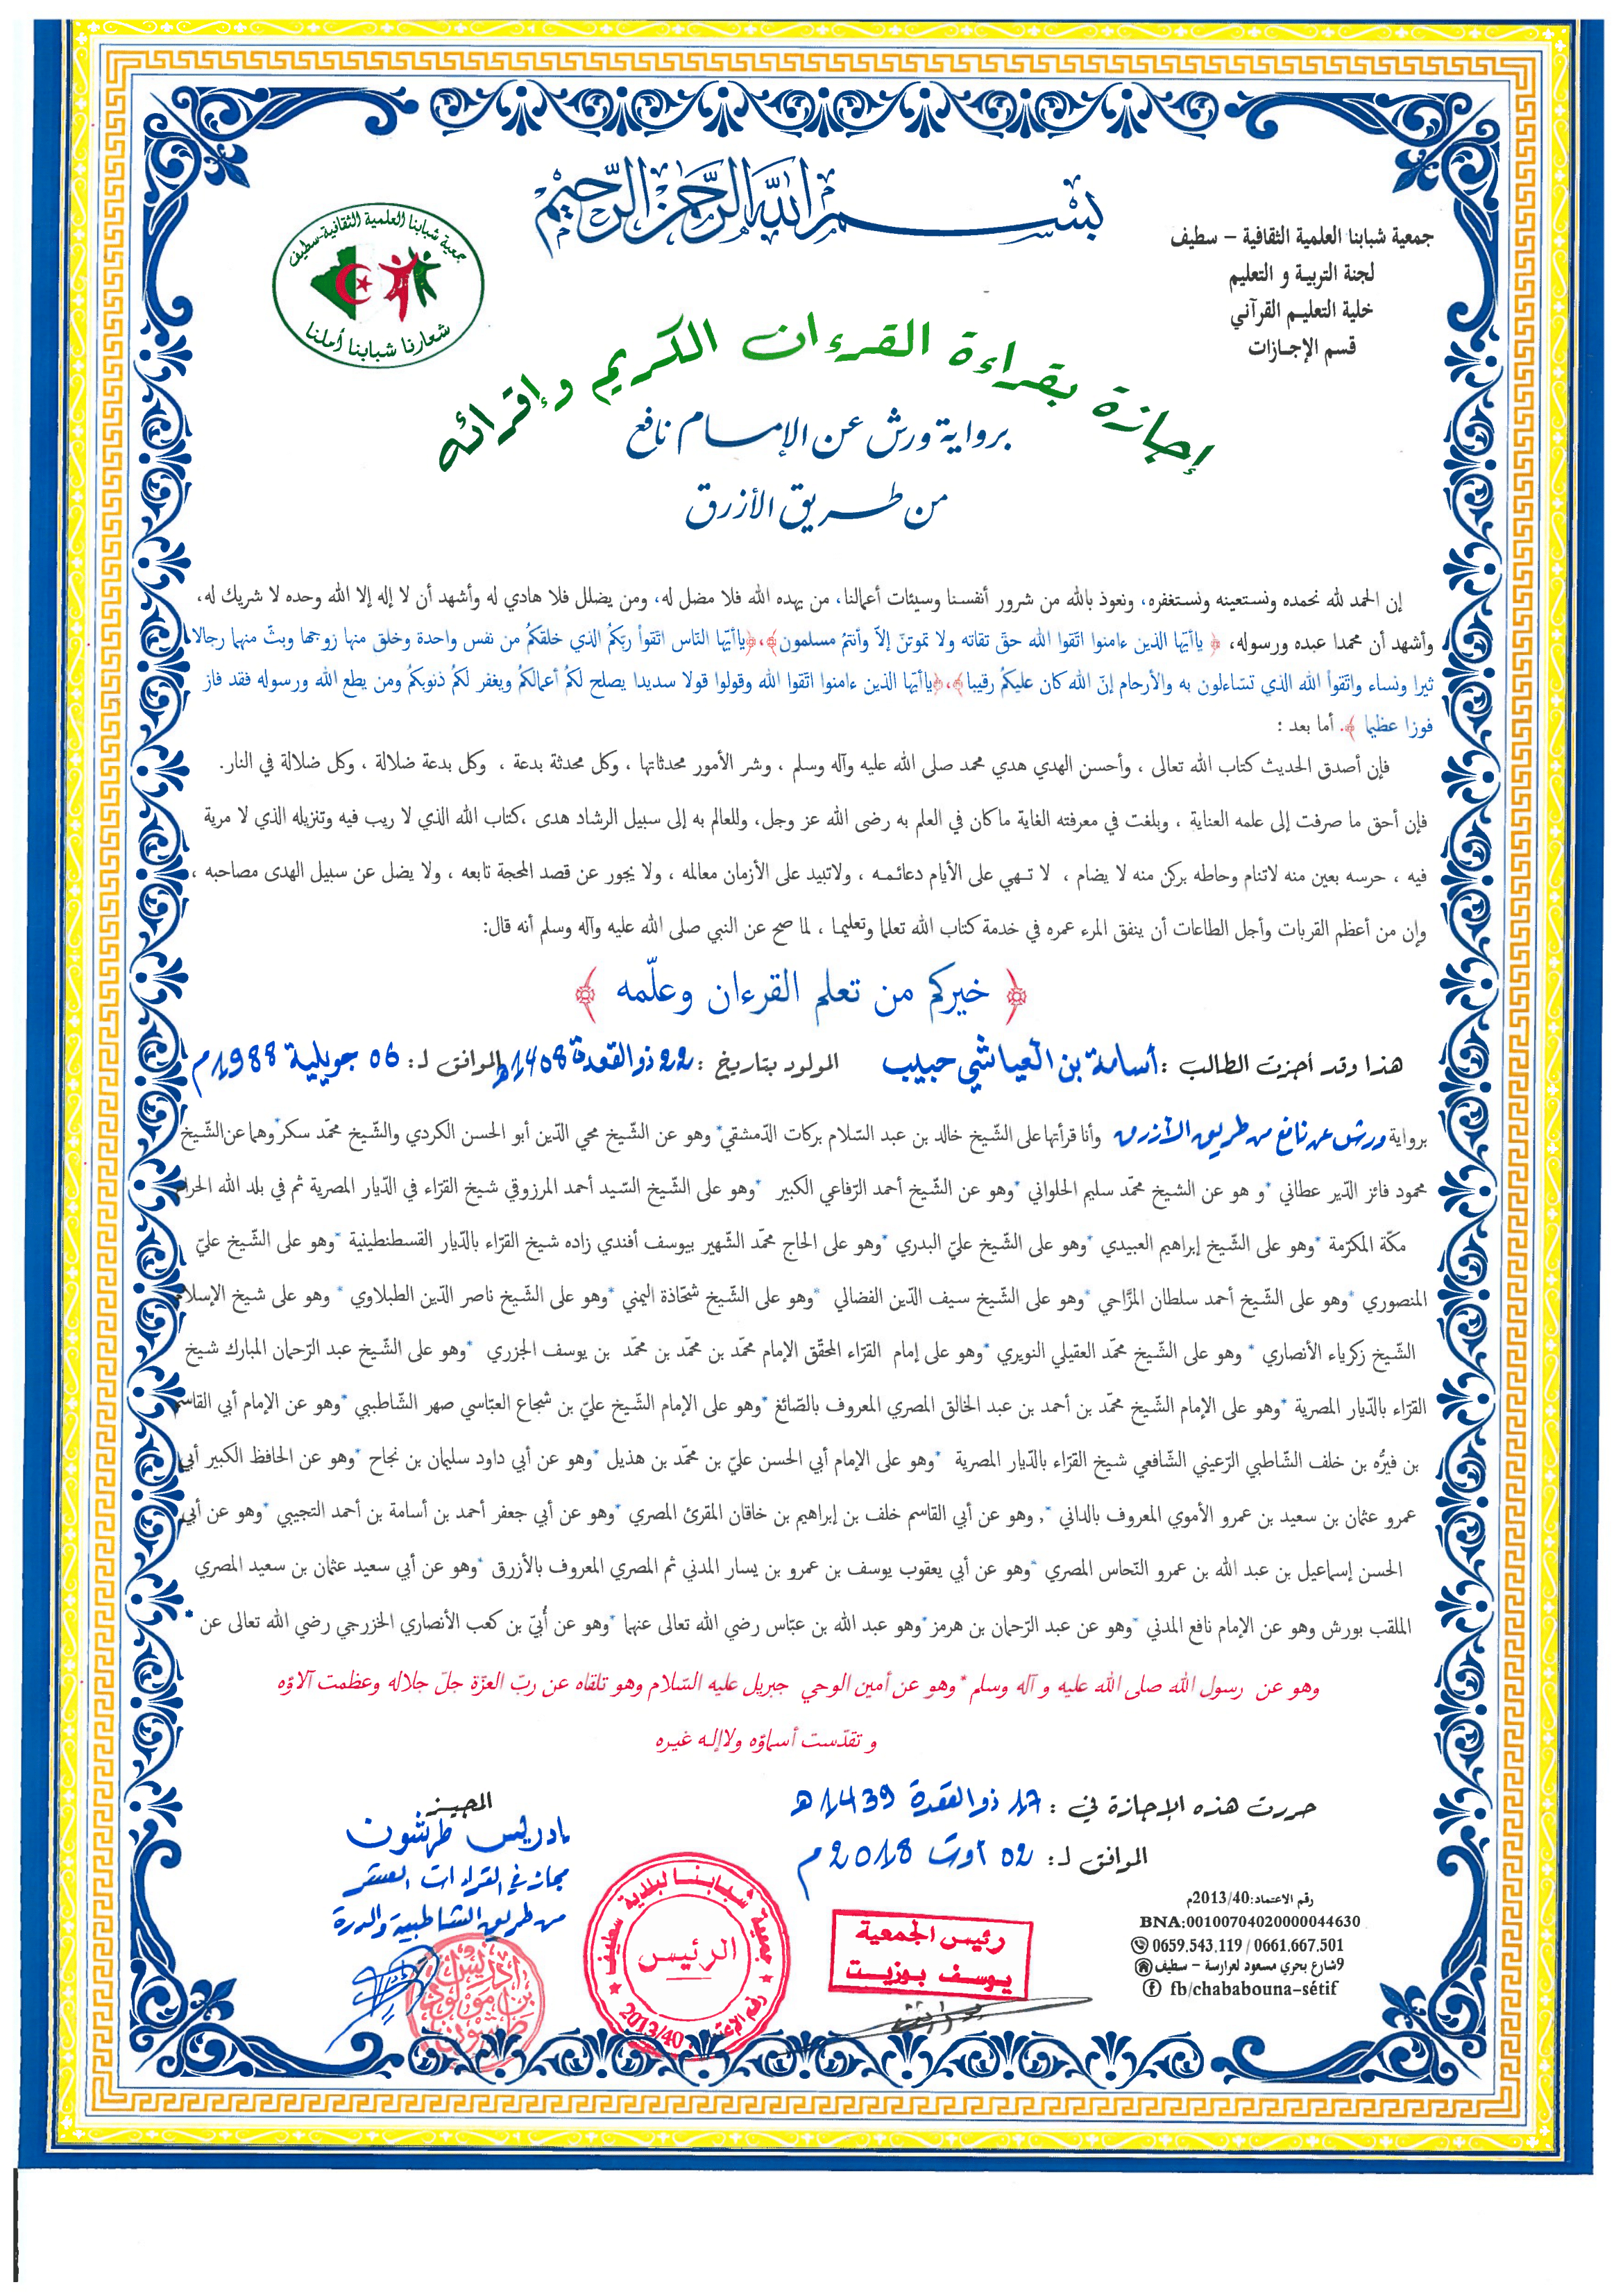 بسم الله الرحمن الرحيم
جمعية شبابنا العلمية الثقافية – سطيف
لجنة التربية و التعليم
خلية التعليم القرآني
قسم الإجازات
جمعية شبابنا العلمية الثقافية-سطيف
شعارنا شبابنا أملنا
إجازة بقراءة القرءان الكريم وإقرائه
برواية ورش عن الإمام نافع
من طريق الأزرق
إن الحمد لله نحمده ونستعينه ونستغفره، ونعوذ بالله من شرور أنفسنا وسيئات أعمالنا، من يهده الله فلا مضل له، ومن يضلل فلا هادي له وأشهد أن لا إله إلا الله وحده لا شريك له،
وأشهد أن محمدا عبده ورسوله، ﴿ ياأيّها الذين ءامنوا اتّقوا الله حقّ تقاته ولا تموتنّ إلاّ وأنتمُ مسلمون﴾،﴿ياأيّها النّاس اتّقواْ ربّكمُ الذي خلقكمُ من نفس واحدة وخلق منها زوجها وبثّ منهما رجالا
ثيرا ونساء واتّقواْ الله الذي تسّاءلون به والأرحام إنّ الله كان عليكمُ رقيبا﴾،﴿ياأيّها الذين ءامنوا اتّقوا الله وقولوا قولا سديدا يصلح لكمُ أعمالكمُ ويغفر لكمُ ذنوبكمُ ومن يطع الله ورسوله فقد فاز
فوزا عظيما ﴾. أما بعد :
فإن أصدق الحديث كتاب الله تعالى ، وأحسن الهدي هدي محمد صلى الله عليه وآله وسلم ، وشر الأمور محدثاتها ، وكل محدثة بدعة ، وكل بدعة ضلالة ، وكل ضلالة في النار.
فإن أحق ما صرفت إلى علمه العناية ، وبلغت في معرفته الغاية ماكان في العلم به رضى الله عز وجل، وللعالم به إلى سبيل الرشاد هدى ،كتاب الله الذي لا ريب فيه وتنزيله الذي لا مرية
فيه ، حرسه بعين منه لاتنام وحاطه بركن منه لا يضام ، لا تـهي على الأيام دعائـمـه ، ولاتبيد على الأزمان معالمه ، ولا يجور عن قصد المحجة تابعه ، ولا يضل عن سبيل الهدى مصاحبه ،
وإن من أعظم القربات وأجل الطاعات أن ينفق المرء عمره في خدمة كتاب الله تعلما وتعليما ، لما صح عن النبي صلى الله عليه وآله وسلم أنه قال:
﴿ خيركم من تعلم القرءان وعلّمه ﴾
هذا وقد أجزت الطالب :أسامة بن العياشي حبيب المولود بتاريخ :22 ذو القعدة 1408ه الموافق لـ: 06 جويلية 1988م
برواية ورش عن نافع من طريق الأزرق وأنا قرأتها على الشّيخ خالد بن عبد السّلام بركات الدّمشقي* وهو عن الشّيخ محي الدّين أبو الحسن الكردي والشّيخ محمّد سكر*وهما عن الشّيخ
محمود فائز الدّير عطاني *و هو عن الشيخ محمّد سليم الحلواني *وهو عن الشّيخ أحمد الرّفاعي الكبير *وهو على الشّيخ السّيد أحمد المرزوقي شيخ القرّاء في الدّيار المصرية ثم في بلد الله الحرام
مكّة المكرّمة *وهو على الشّيخ إبراهيم العبيدي *وهو على الشّيخ عليّ البدري *وهو على الحاج محمّد الشّهير بيوسف أفندي زاده شيخ القرّاء بالدّيار القسطنطينية *وهو على الشّيخ عليّ
المنصوري *وهو على الشّيخ أحمد سلطان المزّاحي *وهو على الشّيخ سيف الدّين الفضالي *وهو على الشّيخ شحّاذة اليمني *وهو على الشّيخ ناصر الدّين الطبلاوي * وهو على شيخ الإسلام
الشّيخ زكرياء الأنصاري * وهو على الشّيخ محمّد العقيلي النويري *وهو على إمام القرّاء المحقّق الإمام محمّد بن محمّد بن محمّد بن يوسف الجزري *وهو على الشّيخ عبد الرّحمان المبارك شيخ
القرّاء بالدّيار المصرية *وهو على الإمام الشّيخ محمّد بن أحمد بن عبد الخالق المصري المعروف بالصّائغ *وهو على الإمام الشّيخ عليّ بن شجاع العبّاسي صهر الشّاطبيي *وهو عن الإمام أبي القاسم
بن فيرُّه بن خلف الشّاطبي الرّعيني الشّافعي شيخ القرّاء بالدّيار المصرية *وهو على الإمام أبي الحسن عليّ بن محمّد بن هذيل *وهو عن أبي داود سليمان بن نجاح *وهو عن الحافظ الكبير أبي
عمرو عثمان بن سعيد بن عمرو الأموي المعروف بالداني *, وهو عن أبي القاسم خلف بن إبراهيم بن خاقان المقرئ المصري *وهو عن أبي جعفر أحمد بن أسامة بن أحمد التجيبي *وهو عن أبي
الحسن إسماعيل بن عبد الله بن عمرو النّحاس المصري *وهو عن أبي يعقوب يوسف بن عمرو بن يسار المدني ثم المصري المعروف بالأزرق *وهو عن أبي سعيد عثمان بن سعيد المصري
الملقب بورش وهو عن الإمام نافع المدني *وهو عن عبد الرّحمان بن هرمز*وهو عبد الله بن عبّاس رضي الله تعالى عنهما *وهو عن أُبيّ بن كعب الأنصاري الخزرجي رضي الله تعالى عن
وهو عن رسول الله صلى الله عليه و آله وسلم *وهو عن أمين الوحي جبريل عليه السّلام وهو تلقاه عن ربّ العزّة جلّ جلاله وعظمت آلاؤه
و تقدّست أسماؤه ولاإله غيره
حررت هذه الإجازة في : 17 ذو القعدة 1439 ه
الموافق لـ: 02 أوت 2018 م
المجيز
إدريس طرشون
مجاز في القراءات العشر
من طريق الشاطبية والدرة
إدريس بن مولود طرشون
جمعية شبابنا لبلدية سطيف
الرئيس
رقم الإعتماد: 2013/40
رئيس الجمعية
يوسف بوزيت
رقم الاعتماد:2013/40م
BNA:00100704020000044630
0659.543.119 / 0661.667.501
9شارع بحري مسعود لعرارسة – سطيف
fb/chababouna-sétif